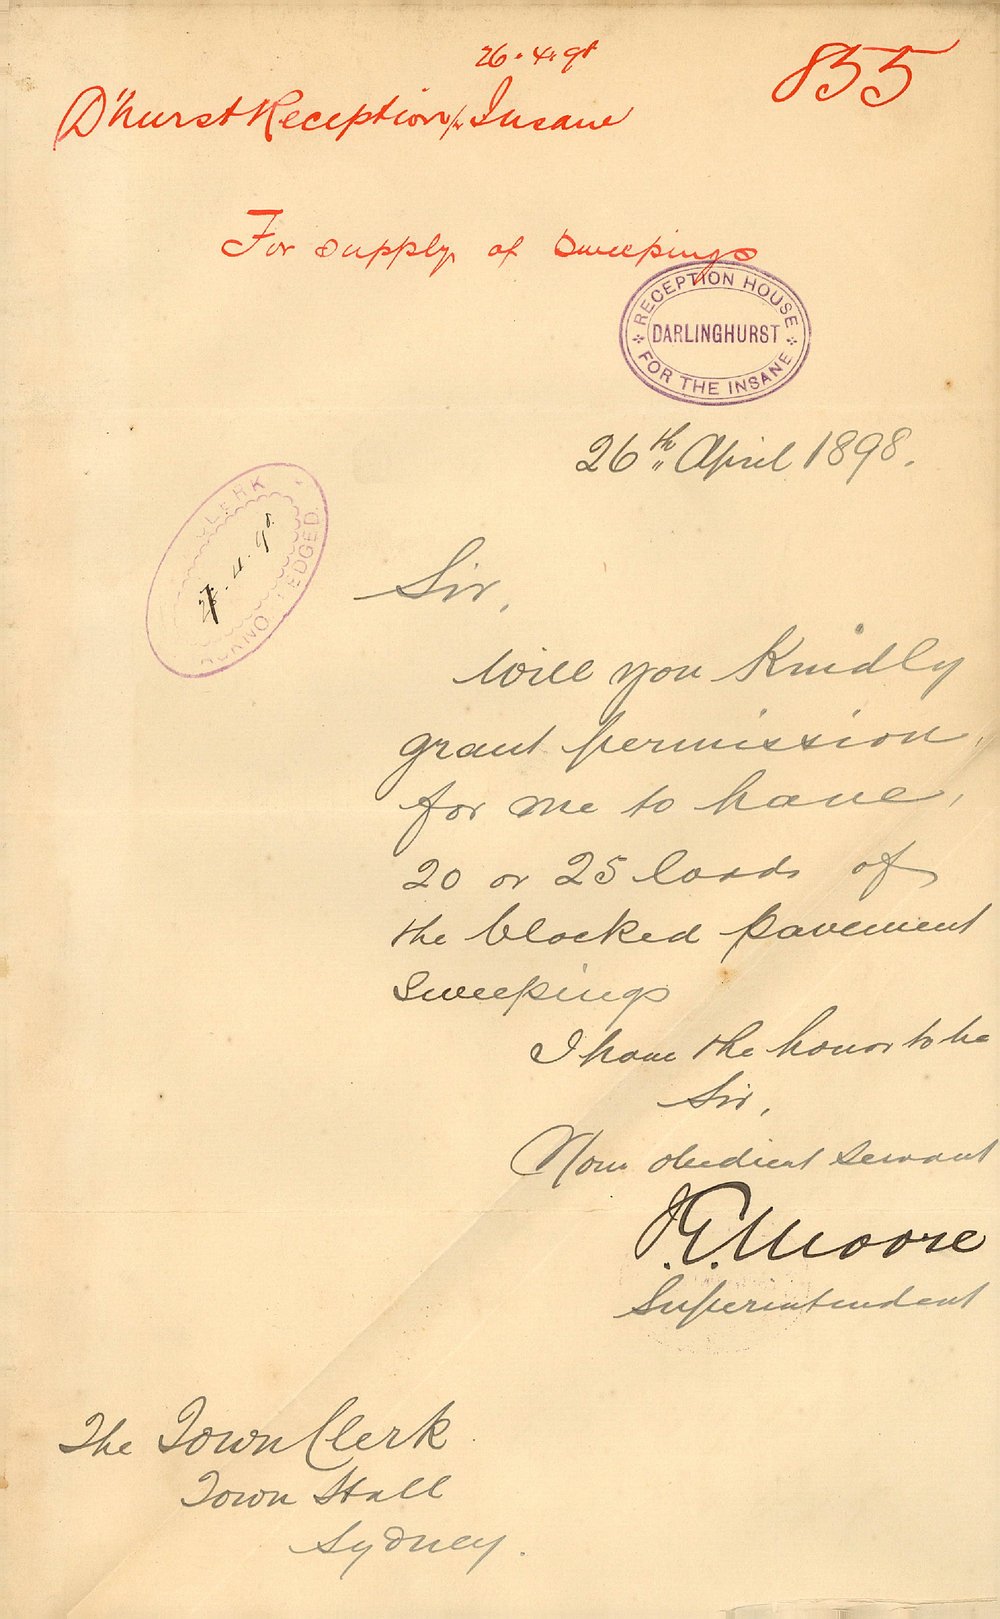 26.4.98
855
D'hurst Reception for Insane
For supply of Sweepings
RECEPTION HOUSE
DARLINGHURST
FOR THE INSANE
26th April 1898.
CLERK
4.98
ACKNOWLEDGED
Sir,
Will you Kindly
grant permission,
for me to have,
20 or 25 loads of
the blocked pavement
Sweepings
I have the honor to be
Sir,
Your obedient Servant
J.E. Moore
Superintendent
The Town Clerk
Town Hall
Sydney.